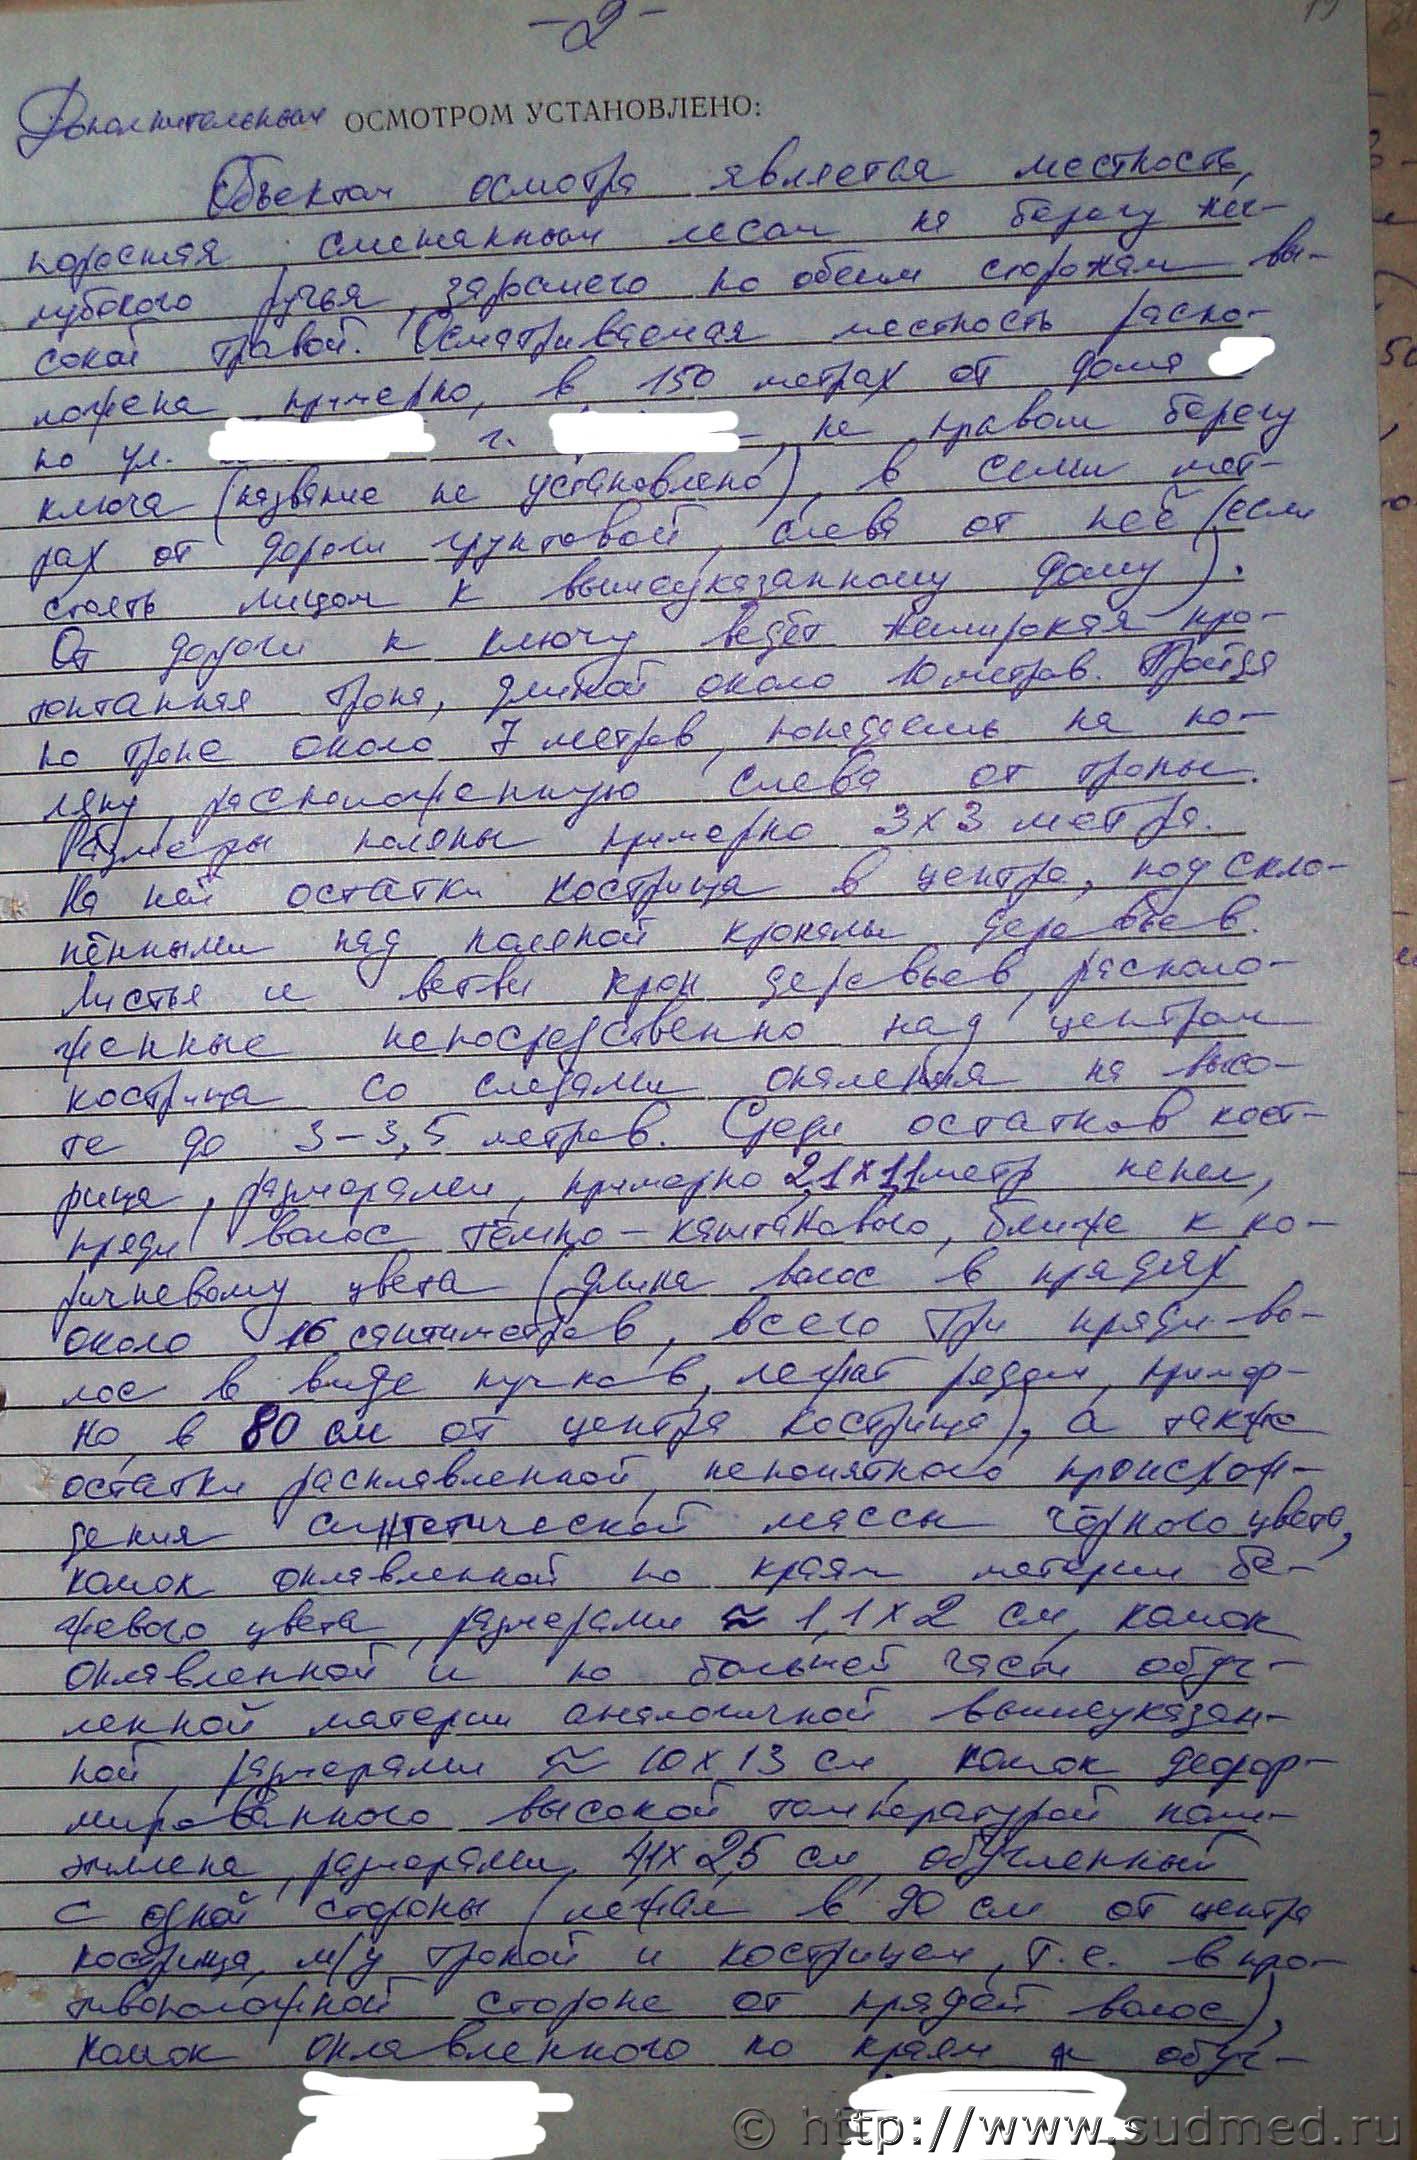 - 2 -
Дополнительным ОСМОТРОМ УСТАНОВЛЕНО:
Объектом осмотра является местность,
поросшая смешанным лесом на берегу не-
глубокого ручья, заросшего по обеим сторонам вы-
сокой травой. Осматриваемая местность распо-
ложена, примерно, в 150 метрах от дома
по ул. г. , на правом берегу
ключа (название не установлено), в семи мет-
рах от дороги грунтовой, слева от неё (если
стоять лицом к вышеуказанному дому).
От дороги к ключу ведёт неширокая про-
топтанная тропа, длиной около 10 метров. Пройдя
по тропе около 7 метров, попадаешь на по-
ляну, расположенную слева от тропы.
Размеры поляны примерно 3х3 метра.
На ней остатки кострища в центре, под скло-
нёнными над поляной кронами деревьев.
Листья и ветви крон деревьев, располо-
женные непосредственно над центром
кострища со следами опаления на высо-
те до 3-3,5 метров. Среди остатков кост-
рища, размерами, примерно 2,1х1,1 метр пепел,
пряди волос тёмно-каштанового, ближе к ко-
ричневому цвета (длина волос в прядях
около 16 сантиметров, всего три пряди во-
лос в виде пучков, лежат рядом, пример-
но, в 80 см от центра кострища), а также
остатки расплавленной, непонятного происхож-
дения синтетической массы чёрного цвета,
комок оплавленной по краям материи бе-
жевого цвета, размерами ≈ 1,1х2 см, комок
оплавленной и по большей части обуг-
ленной материи аналогичной вышеуказан-
ной, размерами ≈ 10х13 см, комок дефор-
мированного высокой температурой поли-
этилена, размерами, 4,1х2,5 см, обугленный
с одной стороны (лежал в 90 см от центра
кострища, м/у тропой и кострищем, т.е. в про-
тивоположной стороне от прядей волос),
комок оплавленного по краям и обуг-
© http://www.sudmed.ru